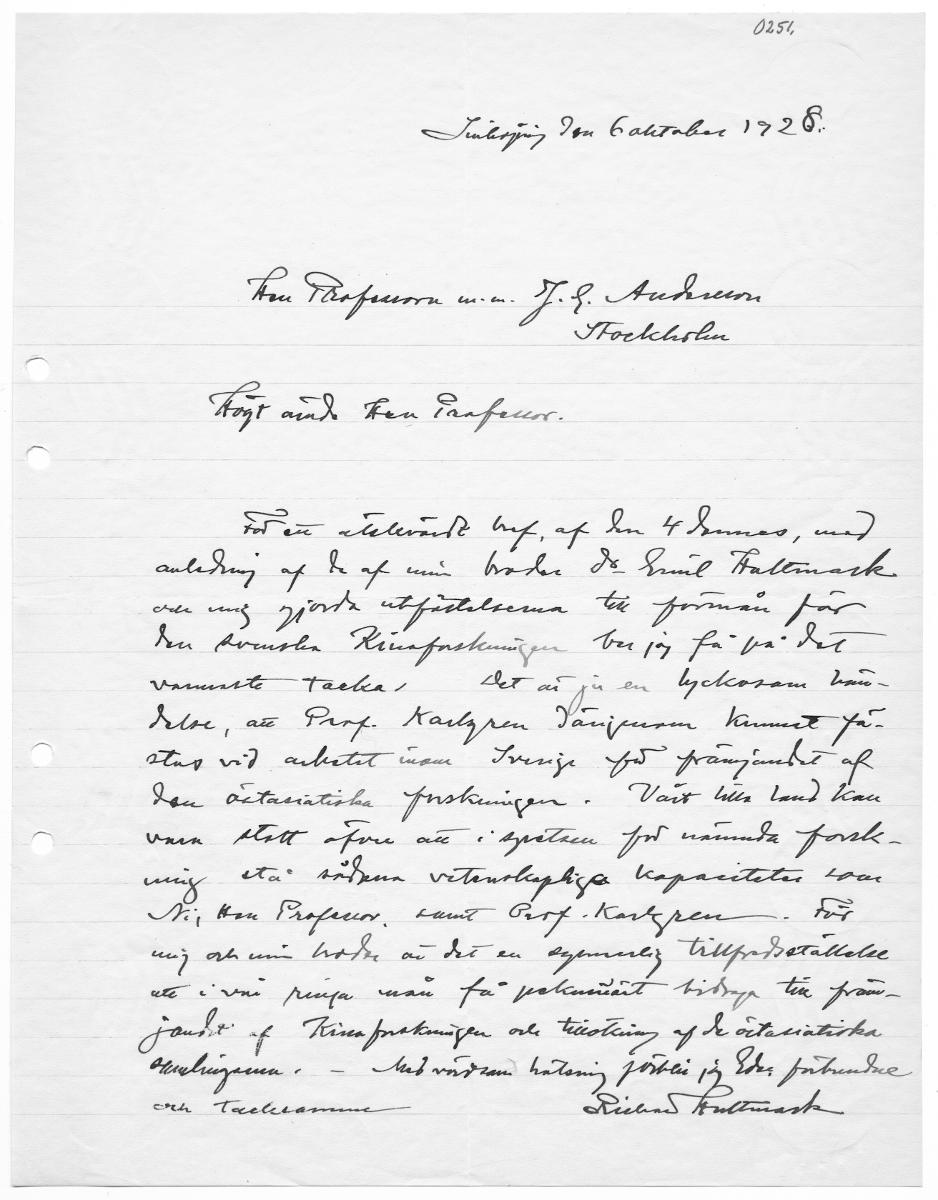 0251.
Linköping den 6 oktober 1928.
Herr Professorn m.m. J. G. Andersson
Stockholm
Högt ärade Herr Professor.
För ett älskvärdt bref, af den 4 dennes, med
anledning af de af min broder Dr Emil Hultmark
och mig gjorda utfästelserna till förmån för
den svenska Kinaforskningen ber jag få på det
varmaste tacka. Det är ju en lyckosam hän-
delse, att Prof. Karlgren därigenom kunnat fä-
stas vid arbetet inom Sverige för främjandet af
den östasiatiska forskningen. Vårt lilla land kan
vara stolt öfver att i spetsen för nämnda forsk-
ning stå sådana vetenskapliga kapaciteter som
Ni, Herr Professor, samt Prof. Karlgren. För
mig och min broder är det en synnerlig tillfredsställelse
att i vår ringa mån få pekuniärt bidraga till främ-
jandet af Kinaforskningen och tillökning af de östasiatiska
samlingarna. – Med vördsam hälsning förblir jag Eder förbundne
och tacksamme Richard Hultmark